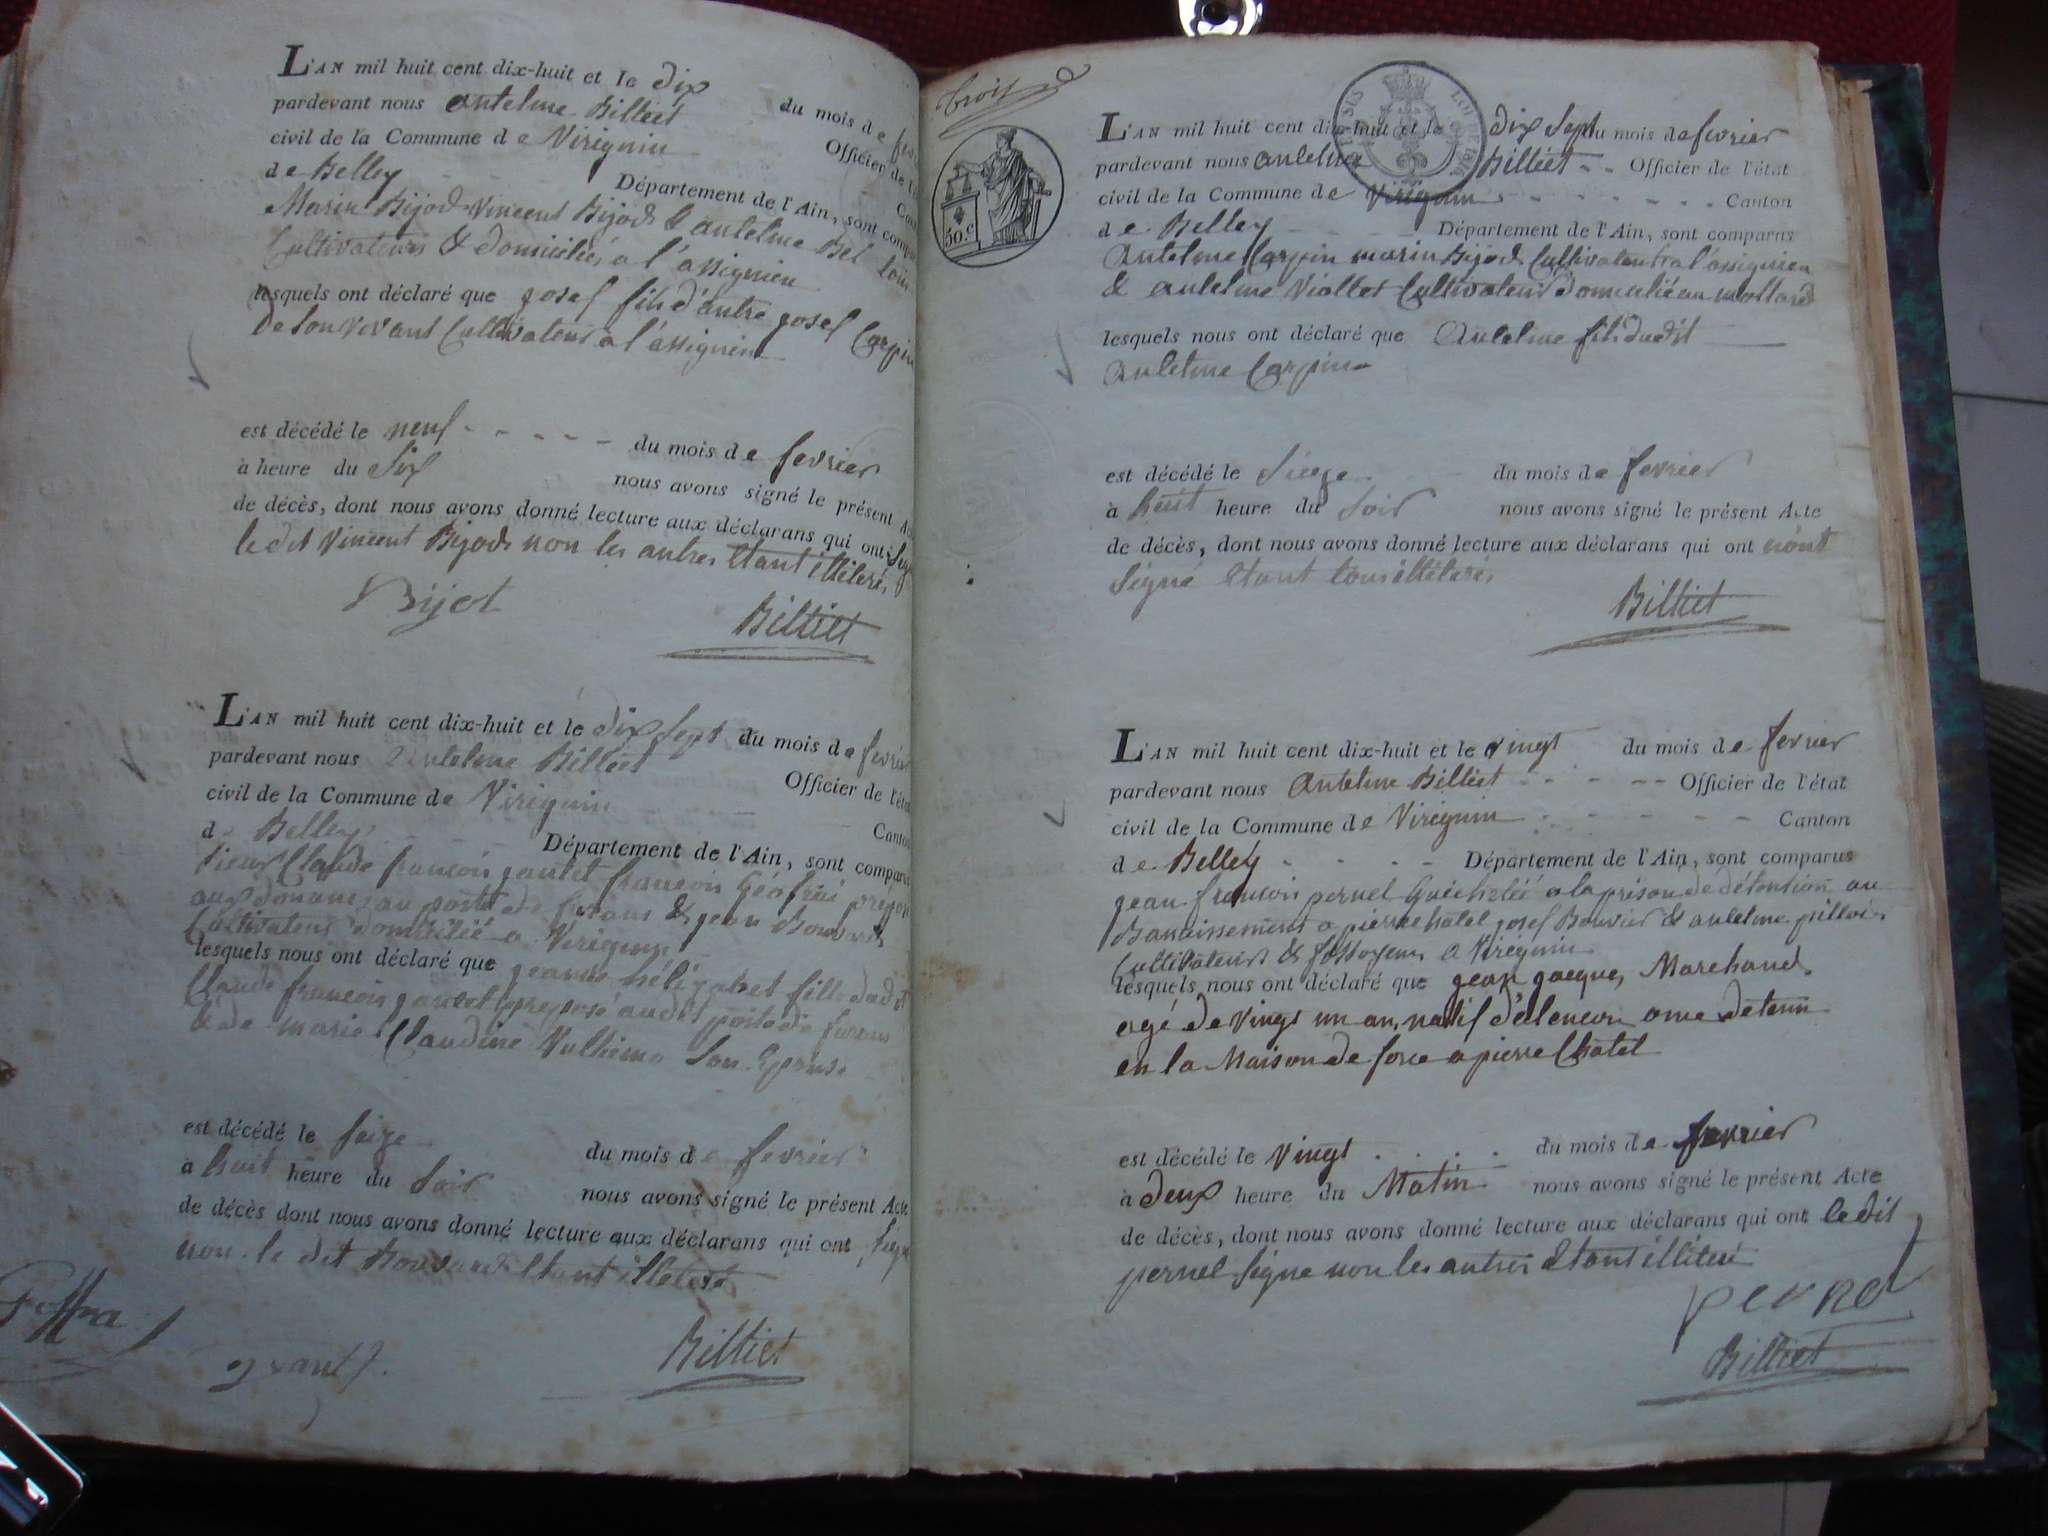 L'AN mil huit cent dix-huit et le dix du mois de
pardevant nous antelme Billiet Officier de
civil de la Commune de Virignin
de Belley Département de l'Ain, sont
Marin Bijod Vincent Bijod & antelme Bel tous
Cultivateurs & domiciliés a l'assignieu
lesquels ont déclaré que josef fils d'autre josef Carpin
De son vivant Cultivateur a l'assignieu
est décédé le neuf du mois de fevrier
à heure du Six nous avons signé le présent
de décès, dont nous avons donné lecture aux déclarans qui ont
le dit Vincent Bijod non les autres Etant illiterés
Bijot
Billiet
L'AN mil huit cent dix-huit et le dix Sept du mois de fevrier
pardevant nous Antelme Billiet Officier de l'état
civil de la Commune de Virignin Canton
de Belley Département de l'Ain, sont comparus
Sieur Claude francois francois
aux douanes au poste de & jean Bouvard
Cultivateur domicilié a Virignin
lesquels nous ont déclaré que fille dudit
Claude francois preposé audit poste de
& de marie Claudine son Epouse
est décédé le seize du mois de fevrier
à huit heure du Soir nous avons signé le présent Acte
de décès dont nous avons donné lecture aux déclarans qui ont signé
non le dit Bouvard Etant illeteré
Billiet
trois
50.C
L'AN mil huit cent dix-huit et le dix Sept du mois de fevrier
pardevant nous antelme Billiet Officier de l'état
civil de la Commune de Virignin Canton
de Belley Département de l'Ain, sont comparus
Antelme Carpin marin Bijod Cultivateur a l'assignieu
& antelme Viollet Cultivateur domicilié au mollard
lesquels nous ont déclaré que Antelme fils dudit
antelme Carpin
est décédé le Sieze du mois de fevrier
à huit heure du Soir nous avons signé le présent Acte
de décès, dont nous avons donné lecture aux déclarans qui ont n'ont
Signé Etant tous illiterés
Billiet
L'AN mil huit cent dix-huit et le vingt du mois de fevrier
pardevant nous Antelme Billiet Officier de l'état
civil de la Commune de Virignin Canton
de Belley Département de l'Ain, sont comparus
jean francois pernet a la prison de détention au
Banaissement a pierre chatel josef Bouvier & antelme
Cultivateurs & fossoyeurs a Virignin
lesquels nous ont déclaré que jean jacque Marchand
agé de vingt un an, natif d'alencon orne detenu
en la Maison de force a pierre Chatel
est décédé le vingt du mois de fevrier
à deux heure du Matin nous avons signé le présent Acte
de décès, dont nous avons donné lecture aux déclarans qui ont ledit
pernet Signe non les autres Etant illiteré
pernet
Billiet